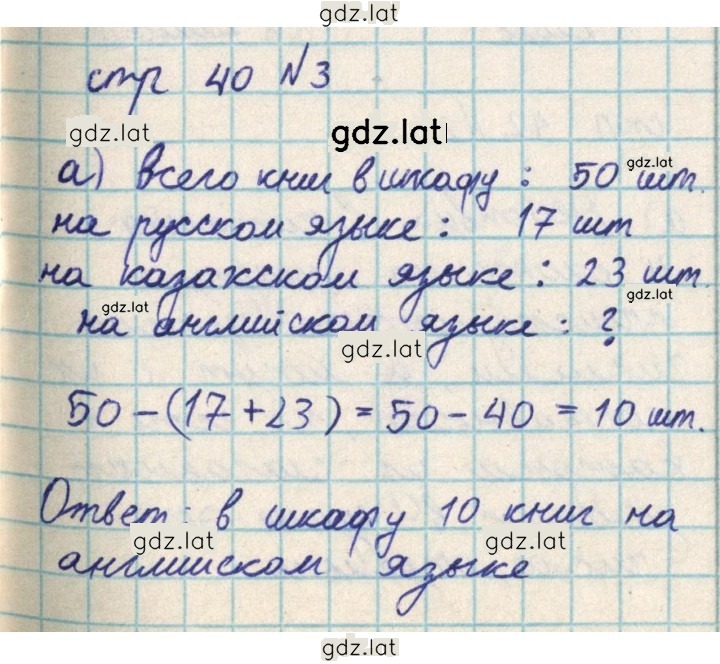 gdz.lat
стр 40 N3
gdz.lat gdz.lat
а) всего книг в шкафу : 50 шт.
gdz.lat
на русском языке : 17 шт
на казахском языке : 23 шт.
gdz.lat gdz.lat
на английском языке : ?
gdz.lat
50 - (17 + 23) = 50 - 40 = 10 шт.
Ответ : в шкафу 10 книг на
gdz.lat gdz.lat
английском языке
gdz.lat